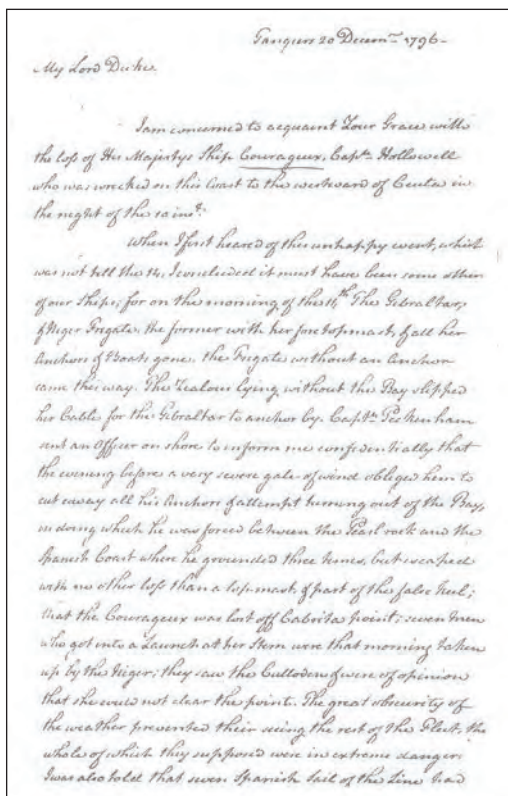 Tangiers 20 Decem^r. 1796-
My Lord Duke.
I am concerned to acquaint Your Grace with
the loss of His Majestys Ship Courageux, Capt^n. Hollowell
who was wrecked on this Coast to the westward of Ceuta in
the night of the 10 ins^t.
When I first heard of this unhappy event, which
was not till the 14, I concluded it must have been some other
of our Ships; for on the morning of the 11^th The Gibraltar,
& Niger Fregate, the former with her foretopmast, & all her
Anchors & Boats gone, the Fregate without an Anchor
came this way. The Zealous lying without the Bay slipped
her Cable for the Gibraltar to anchor by. Capt^n Peckenham
sent an Officer on shore to inform me confidentially that
the evening before a very severe gale of wind obliged him to
cut away all his Anchors & attempt turning out of the Bay,
in doing which he was forced between the Pearl rock and the
Spanish Coast where he grounded three times, but escaped
with no other loss than a topmast, & part of the false keel;
that the Courageux was lost off Cabrita point; seven men
who got into a Launch at her Stern were that morning taken
up by the Niger; they saw the Culloden & were of opinion
that she would not clear the point. The great obscurity of
the weather prevented their seeing the rest of the Fleet, the
whole of which they supposed were in extreme danger.
I was also told that seven Spanish Sail of the Line had